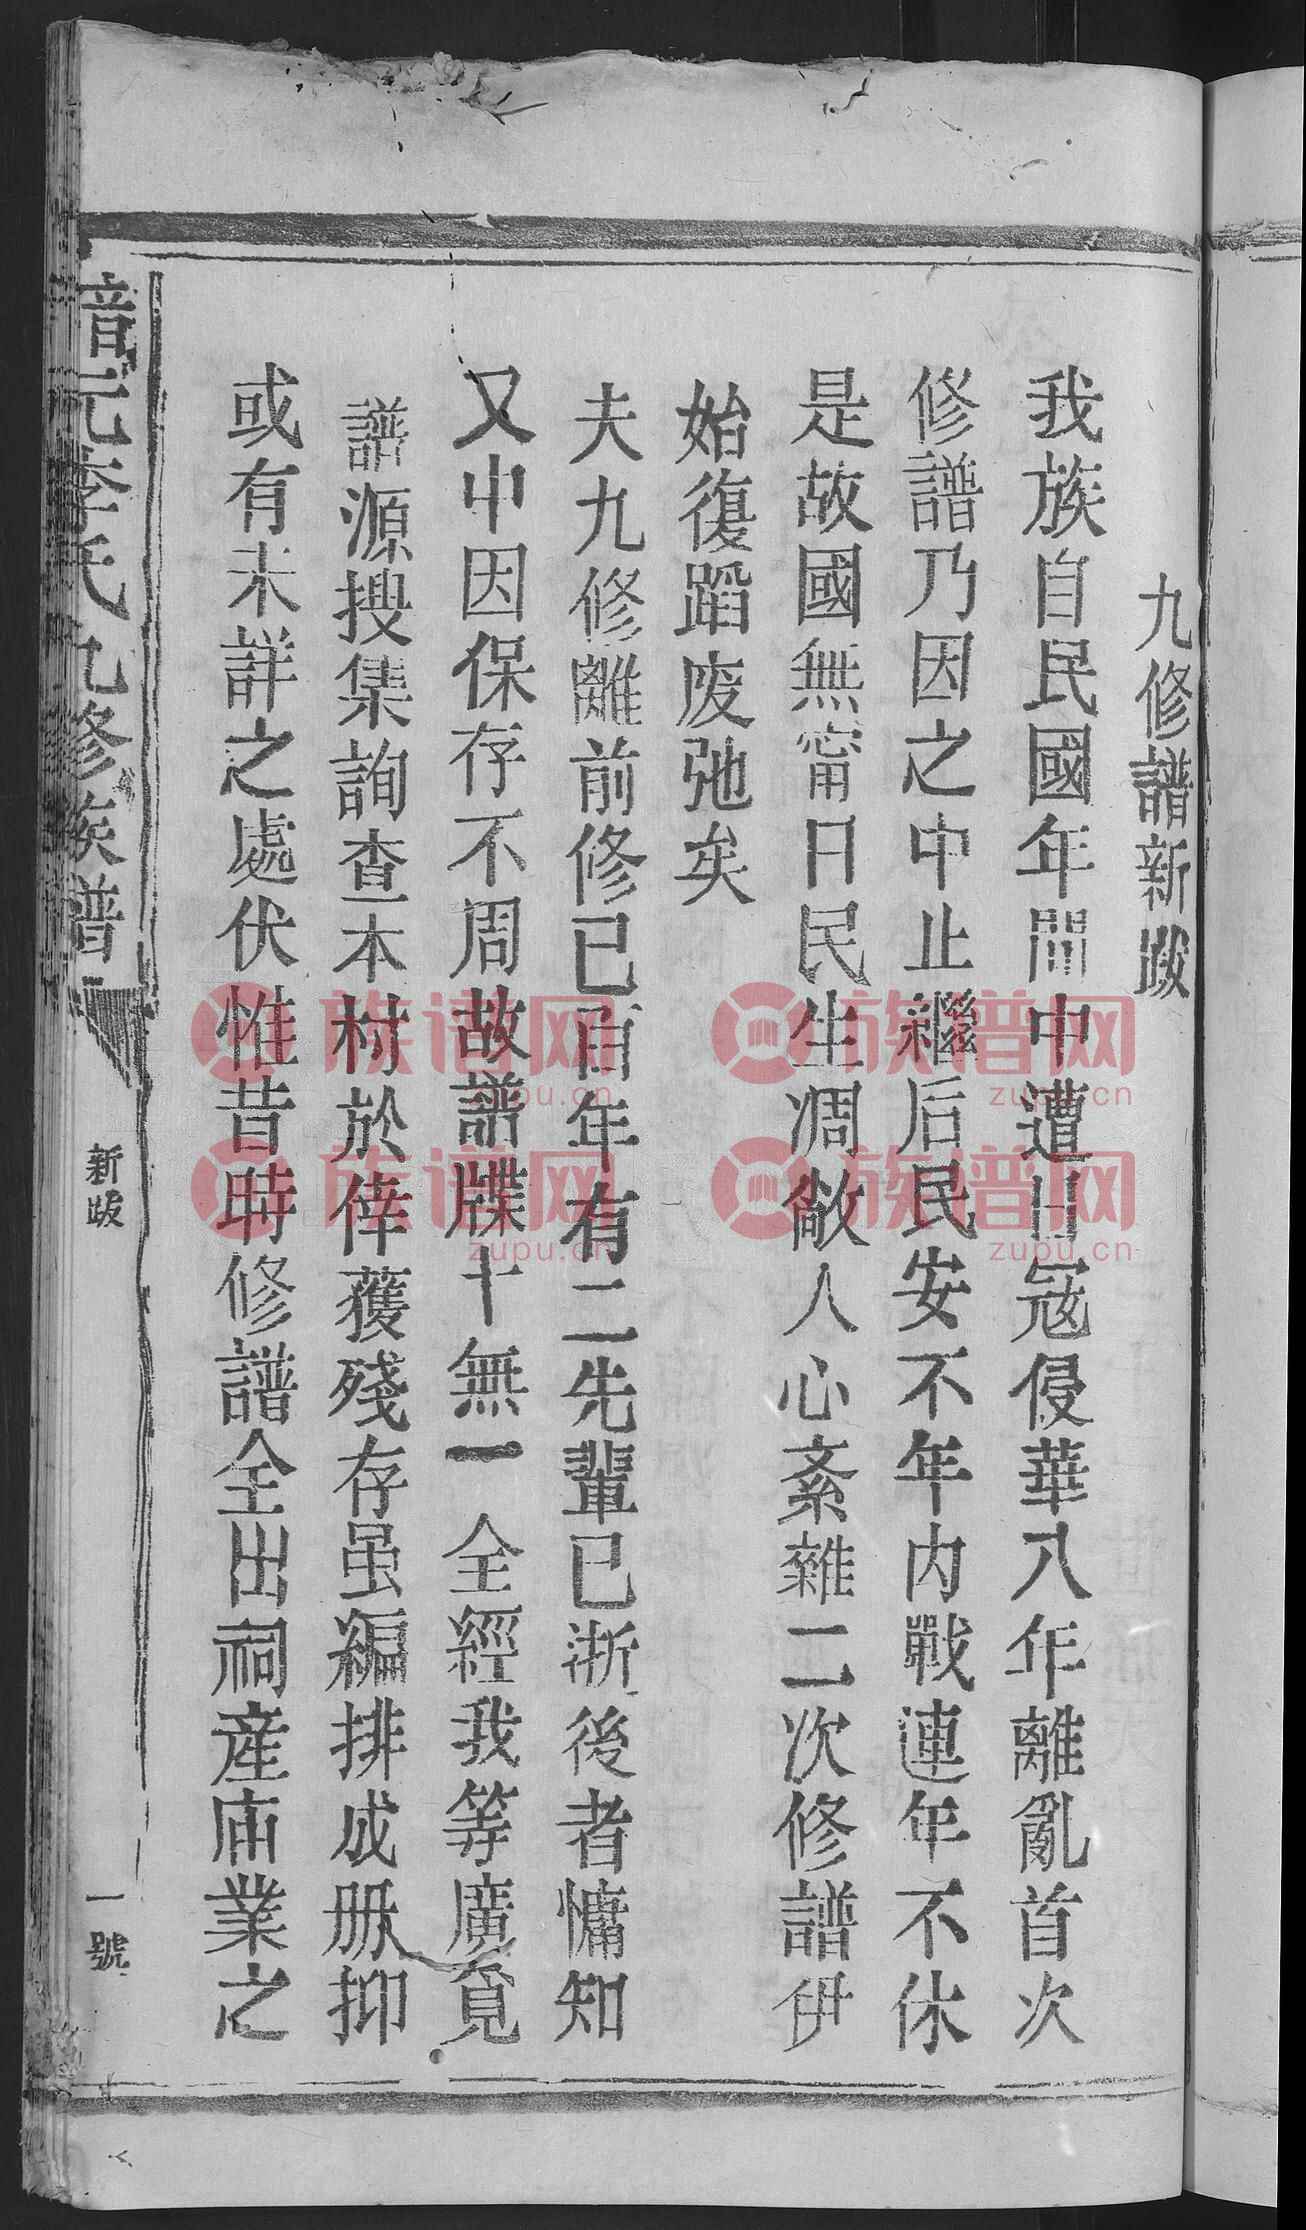 九修譜新跋
我族自民國年間中遭日冦侵華八年離亂首次
修譜乃因之中止繼后民安不年内戰連年不休
是故國無甯日民生凋敝人心紊雜二次修譜伊
始復蹈废弛矣
夫九修離前修已百年有二先輩已渐後者慵知
又中因保存不周故譜牒十無一全經我等廣覓
譜源搜集詢查本村於倖獲殘存虽編排成册抑
或有未詳之處伏惟昔時修譜全出祠産庙業之
元李氏九修族譜
新跋
一號
族谱网
zupu.cn
族谱网
zupu.cn
族谱网
zupu.cn
族谱网
zupu.cn